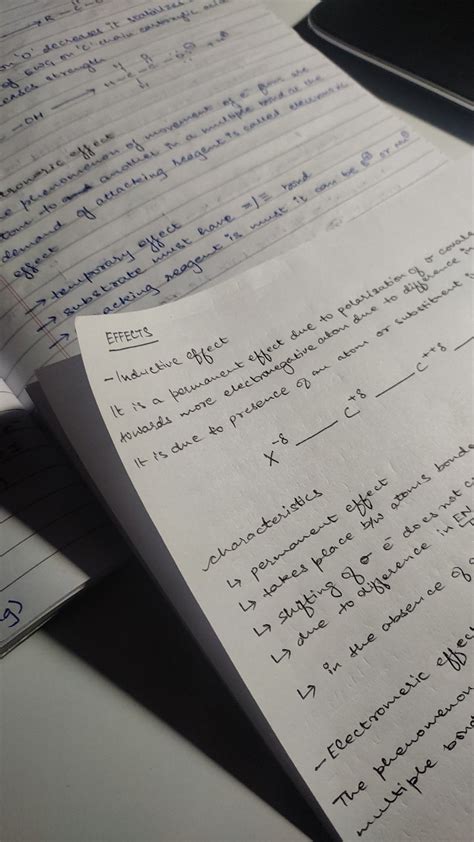 R - C - O
on 'O' decreases it stabilizes
of EWG on 'C' chain carboxylic acid
strength
-OH → H-C-C-O + H
effect
phenomenon of movement of e⁻ from one
to another in a multiple bond at the
demand of attacking reagent is called electromeric
effect
→ temporary effect
→ substrate must have =/≡ bond
→ attacking reagent is must it can be E⊕ or
EFFECTS
- Inductive effect
It is a permanent effect due to polarization of σ covalent
towards more electronegative atom due to difference in
It is due to presence of an atom or substituent
X^-δ — C^+δ — C^++δ —
characteristics
↳ permanent effect
↳ takes place b/w atoms bonded
↳ shifting of σ e⁻ does not
↳ due to difference in EN
↳ in the absence of
- Electromeric effect
The phenomenon
multiple bond